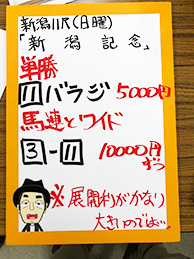 新潟11R(日曜)
「新潟記念」
単勝
11バラジ 5000円
馬連とワイド
3-11 10000円
ずつ
※展開利がかなり
大きいのでは…